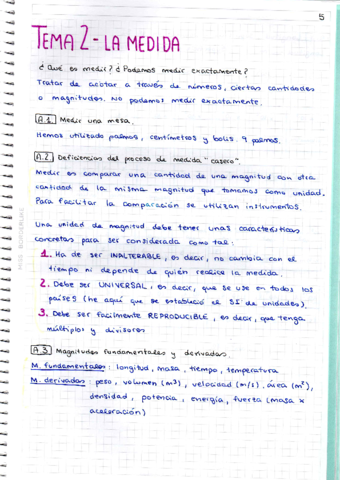 5
TEMA 2 - LA MEDIDA
¿Qué es medir? ¿Podemos medir exactamente?
Tratar de acotar a través de números, ciertas cantidades
o magnitudes. No podemos medir exactamente.
A.1. Medir una mesa.
Hemos utilizado palmos, centímetros y bolis. 9 palmos.
A.2. Deficiencias del proceso de medida "casero".
Medir es comparar una cantidad de una magnitud con otra
cantidad de la misma magnitud que tomamos como unidad.
Para facilitar la comparación se utilizan instrumentos.
Una unidad de magnitud debe tener unas características
concretas para ser considerada como tal:
1. Ha de ser INALTERABLE, es decir, no cambia con el
tiempo ni depende de quién realice la medida.
2. Debe ser UNIVERSAL, es decir, que se use en todos los
países (he aquí que se estableció el SI de unidades).
3. Debe ser facilmente REPRODUCIBLE, es decir, que tenga
múltiplos y divisores
A.3. Magnitudes fundamentales y derivadas.
M. fundamentales: longitud, masa, tiempo, temperatura
M. derivadas: peso, volumen (m³), velocidad (m/s), área (m²),
densidad, potencia, energía, fuerza (masa x
aceleración)